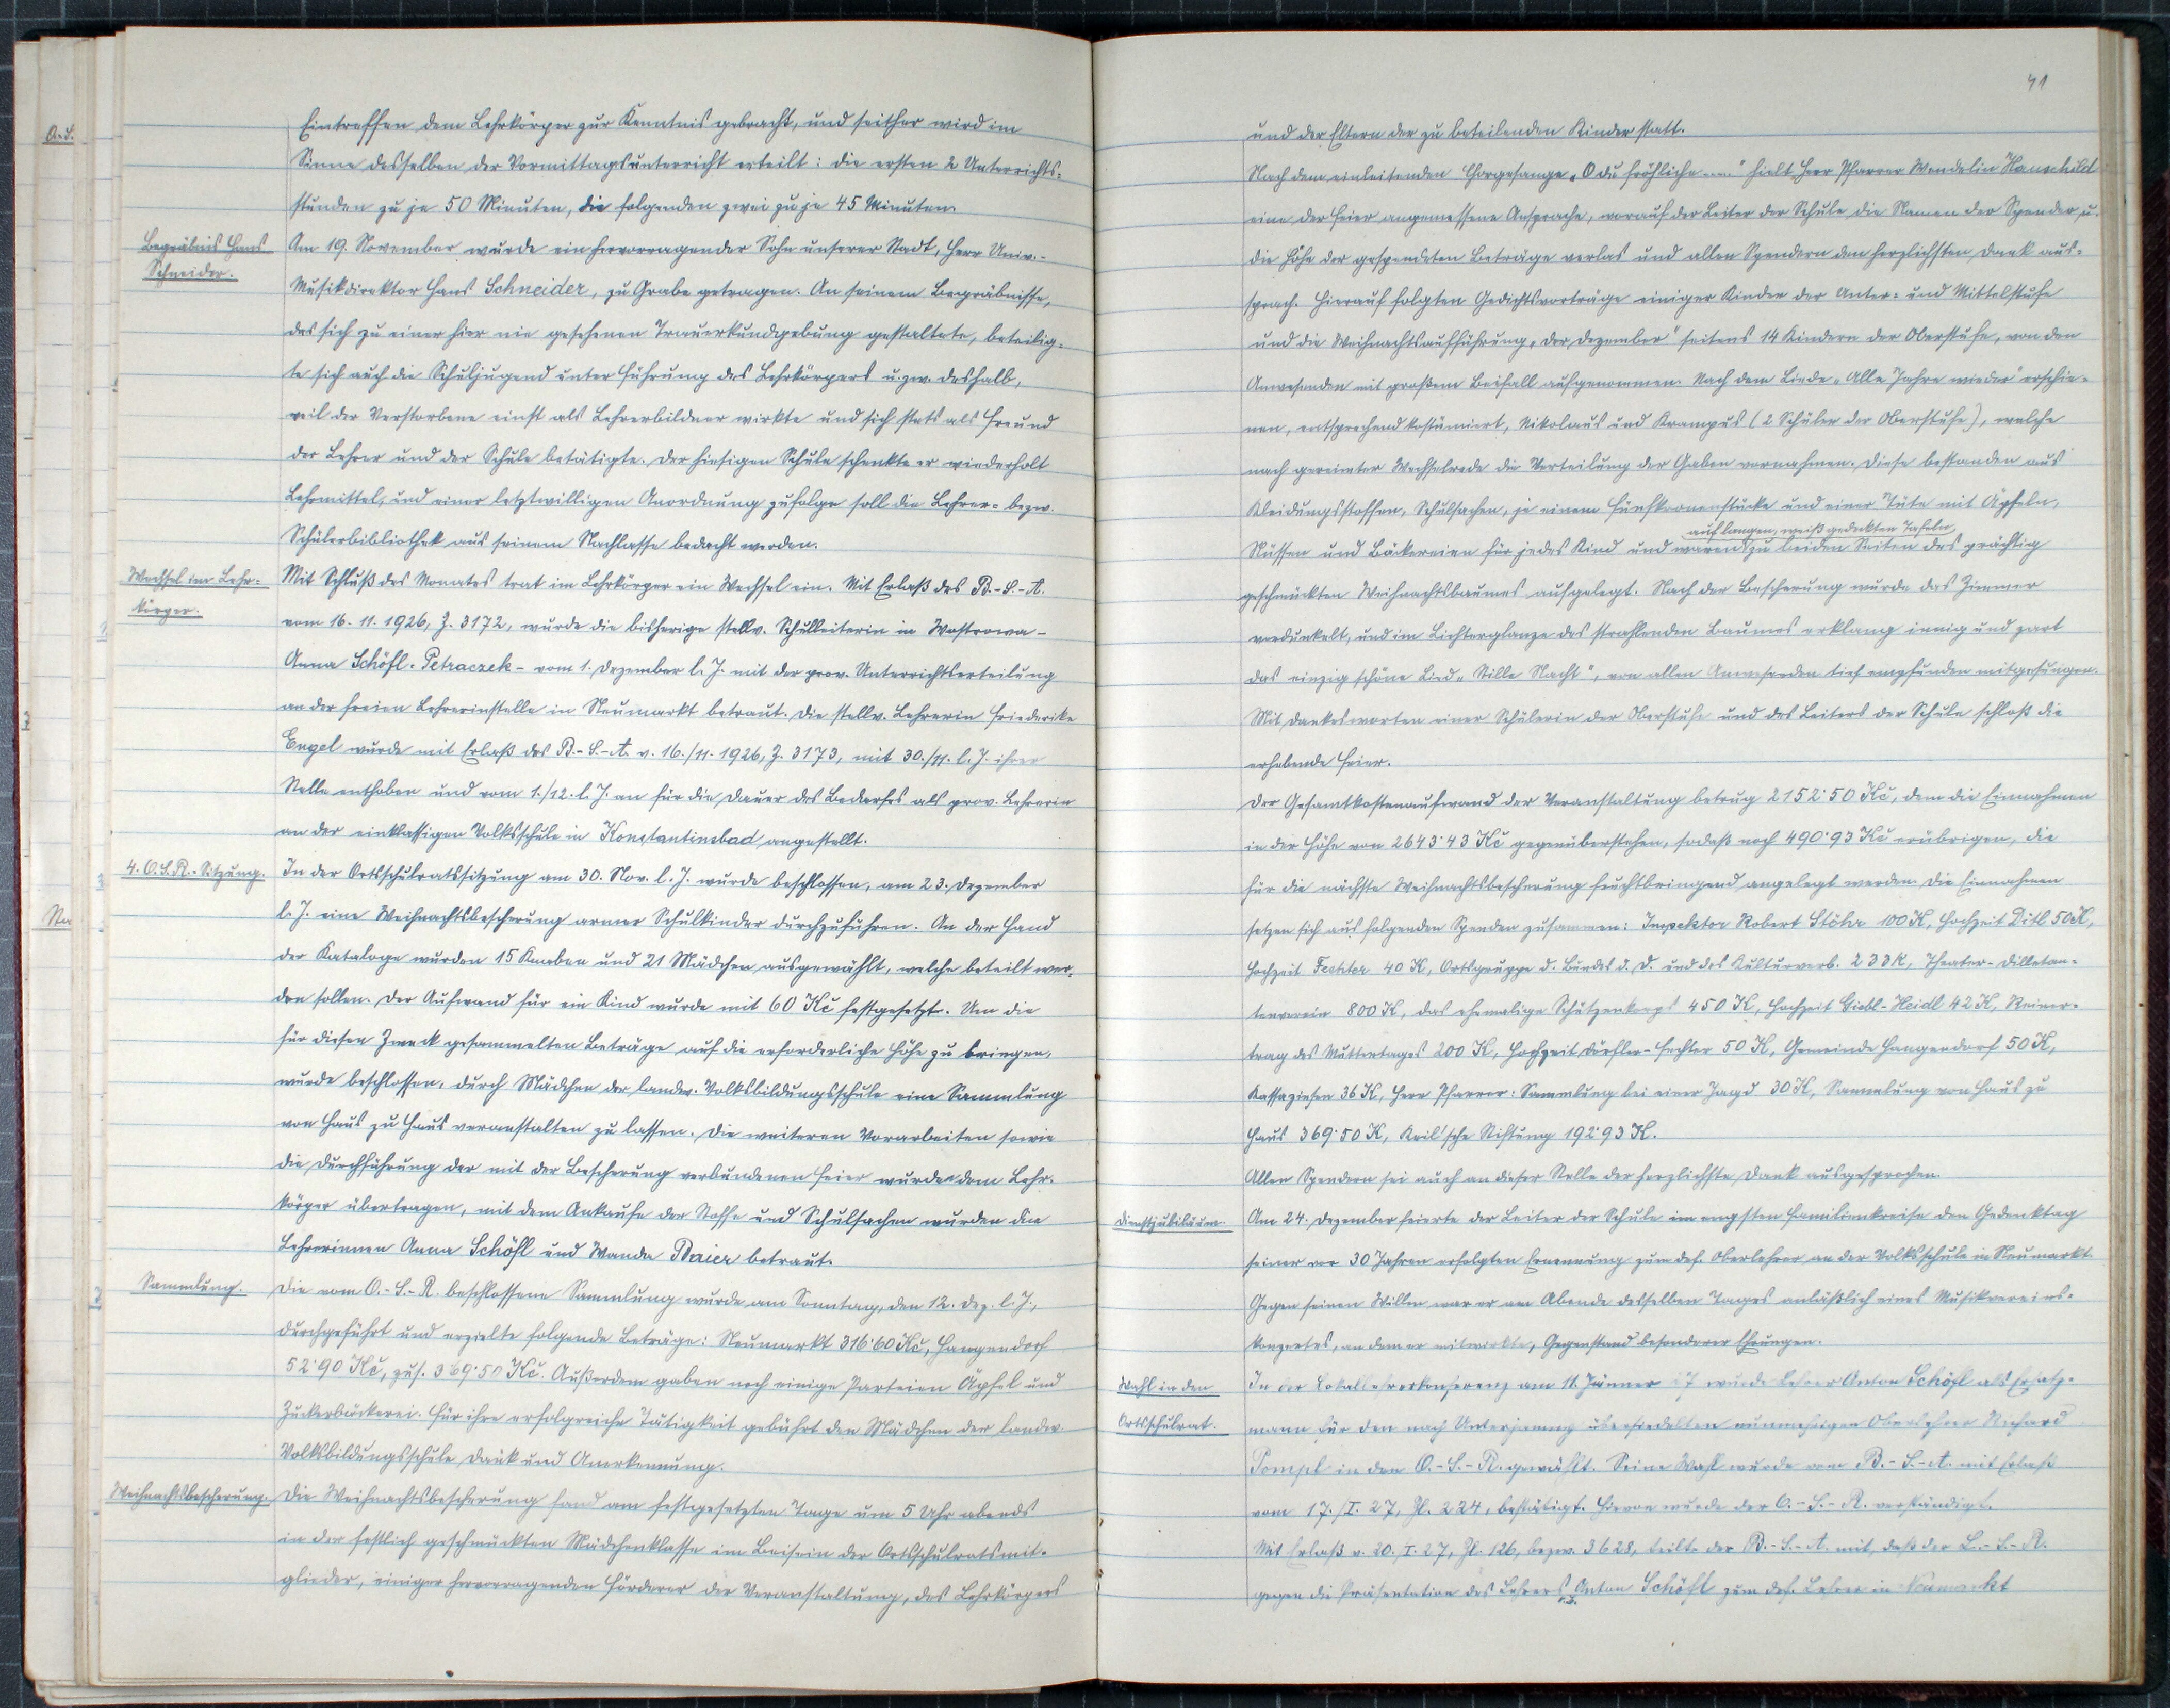 O.-S.
Na
Eintreffen dem Lehrkörper zur Kenntnis gebracht, und seither wird im
Sinne desselben der Vormittagsunterricht erteilt: die ersten 2 Unterrichts-
stunden zu je 50 Minuten, die folgenden zwei zu je 45 Minuten.
Begräbnis Hans
Schneider.
Am 19. November wurde ein hervorragender Sohn unserer Stadt, Herr Univ.-
Musikdirektor Hans Schneider, zu Grabe getragen. An seinem Begräbnisse,
das sich zu einer hier nie gesehenen Trauerkundgebung gestaltete, beteilig-
te sich auch die Schuljugend unter Führung des Lehrkörpers u. zw. deshalb,
weil der Verstorbene einst als Lehrerbildner wirkte und sich stets als Freund
der Lehrer und der Schule betätigte. Der hiesigen Schule schenkte er wiederholt
Lehrmittel, und einer letztwilligen Anordnung zufolge soll die Lehrer- bezw.
Schülerbibliothek aus seinem Nachlasse bedacht werden.
Wechsel im Lehr-
körper.
Mit Schluß des Monates trat im Lehrkörper ein Wechsel ein. Mit Erlaß des B.-S.-A.
vom 16. 11. 1926, Z. 3172, wurde die bisherige stellv. Schulleiterin in Wostrowa -
Anna Schöfl-Petraczek - vom 1. Dezember l. J. mit der prov. Unterrichtserteilung
an der freien Lehrerinstelle in Neumarkt betraut. Die stellv. Lehrerin Friederike
Engel wurde mit Erlaß des B.-S.-A. v. 16./11. 1926, Z. 3173, mit 30./11. l. J. ihrer
Stelle enthoben und vom 1./12. l. J. an für die Dauer des Bedarfes als prov. Lehrerin
an der einklassigen Volksschule in Konstantinsbad angestellt.
4. O.S.R.-Sitzung.
In der Ortsschulratssitzung am 30. Nov. l. J. wurde beschlossen, am 23. Dezember
l. J. eine Weihnachtsbescherung armer Schulkinder durchzuführen. An der Hand
der Kataloge wurden 15 Knaben und 21 Mädchen ausgewählt, welche beteilt wer-
den sollen. Der Aufwand für ein Kind wurde mit 60 Kč festgesetzt. Um die
für diesen Zweck gesammelten Beträge auf die erforderliche Höhe zu bringen,
wurde beschlossen, durch Mädchen der landw. Volksbildungsschule eine Sammlung
von Haus zu Haus veranstalten zu lassen. Die weiteren Vorarbeiten sowie
die Durchführung der mit der Bescherung verbundenen Feier wurden dem Lehr-
körper übertragen, mit dem Ankaufe der Stoffe und Schulsachen wurden die
Lehrerinnen Anna Schöfl und Wanda Baier betraut.
Sammlung.
Die vom O.-S.-R. beschlossene Sammlung wurde am Sonntag, den 12. Dez. l. J.,
durchgeführt und erzielte folgende Beträge: Neumarkt 316·60 Kč, Hangendorf
52·90 Kč, zus. 369·50 Kč. Außerdem gaben noch einige Parteien Äpfel und
Zuckerbäckerei. Für ihre erfolgreiche Tätigkeit gebührt den Mädchen der landw.
Volksbildungsschule Dank und Anerkennung.
Weihnachtsbescherung.
Die Weihnachtsbescherung fand am festgesetzten Tage um 5 Uhr abends
in der festlich geschmückten Mädchenklasse im Beisein der Ortsschulratsmit-
glieder, einiger hervorragenden Förderer der Veranstaltung, des Lehrkörpers
41
und der Eltern der zu beteilenden Kinder statt.
Nach dem einleitenden Chorgesange „O du fröhliche ....." hielt Herr Pfarrer Wendelin Hanschild
eine der Feier angemessene Ansprache, worauf der Leiter der Schule die Namen der Spender u.
die Höhe der gespendeten Beträge verlas und allen Spendern den herzlichsten Dank aus-
sprach. Hierauf folgten Gedichtsvorträge einiger Kinder der Unter- und Mittelstufe
und die Weihnachtsaufführung „Der Dezember" seitens 14 Kindern der Oberstufe, von den
Anwesenden mit großem Beifall aufgenommen. Nach dem Liede „Alle Jahre wieder" erschie-
nen, entsprechend kostümiert, Nikolaus und Krampus (2 Schüler der Oberstufe), welche
nach gereimter Wechselrede die Verteilung der Gaben vornahmen. Diese bestanden aus
Kleidungsstoffen, Schulsachen, je einem Fünfkronenstücke und einer Tüte mit Äpfeln,
auf langen, weiß gedeckten Tafeln
Nüssen und Bäckereien für jedes Kind und waren zu beiden Seiten des prächtig
geschmückten Weihnachtsbaumes aufgelegt. Nach der Bescherung wurde das Zimmer
verdunkelt, und im Lichterglanze des strahlenden Baumes erklang innig und zart
das einzig schöne Lied „Stille Nacht", von allen Anwesenden tief empfunden mitgesungen.
Mit Dankesworten einer Schülerin der Oberstufe und des Leiters der Schule schloß die
erhebende Feier.
Der Gesamtkostenaufwand der Veranstaltung betrug 2152·50 Kč, dem die Einnahmen
in der Höhe von 2643·43 Kč gegenüberstehen, sodaß noch 490·93 Kč erübrigen, die
für die nächste Weihnachtsbescherung fruchtbringend angelegt werden. Die Einnahmen
setzen sich aus folgenden Spenden zusammen: Inspektor Robert Stöhr 100 K, Hochzeit Ditl 50 K,
Hochzeit Fechter 40 K, Ortsgruppe d. Bundes d. D. und des Kulturverb. 233 K, Theater-Dilletan-
tenverein 800 K, das ehemalige Schützenkorps 450 K, Hochzeit Giebl-Heidl 42 K, Reiner-
trag des Muttertages 200 K, Hochzeit Dörfler-Fechter 50 K, Gemeinde Hangendorf 50 K,
Kassazinsen 36 K, Herr Pfarrer: Sammlung bei einer Jagd 30 K, Sammlung von Haus zu
Haus 369·50 K, Kreil'sche Stiftung 192·93 K.
Allen Spendern sei auch an dieser Stelle der herzlichste Dank ausgesprochen.
Dienstjubiläum.
Am 24. Dezember feierte der Leiter der Schule im engsten Familienkreise den Gedenktag
seiner vor 30 Jahren erfolgten Ernennung zum def. Oberlehrer an der Volksschule in Neumarkt.
Gegen seinen Willen war er am Abende desselben Tages anläßlich eines Musikvereins-
konzertes, an dem er mitwirkte, Gegenstand besonderer Ehrungen.
Wahl in den
Ortsschulrat.
In der Lokallehrerkonferenz am 11. Jänner 27 wurde Lehrer Anton Schöfl als Ersatz-
mann für den nach Unterjamny übersiedelten nunmehrigen Oberlehrer Richard
Pompl in den O.-S.-R. gewählt. Seine Wahl wurde vom B.-S.-A. mit Erlaß
vom 17./I. 27, Zl. 224, bestätigt. Hievon wurde der O.-S.-R. verständigt.
Mit Erlaß v. 20./I. 27, Zl. 126, bezw. 3628, teilte der B.-S.-A. mit, daß der L.-S.-R.
gegen die Präsentation des Lehrers Anton Schöfl zum def. Lehrer in Neumarkt